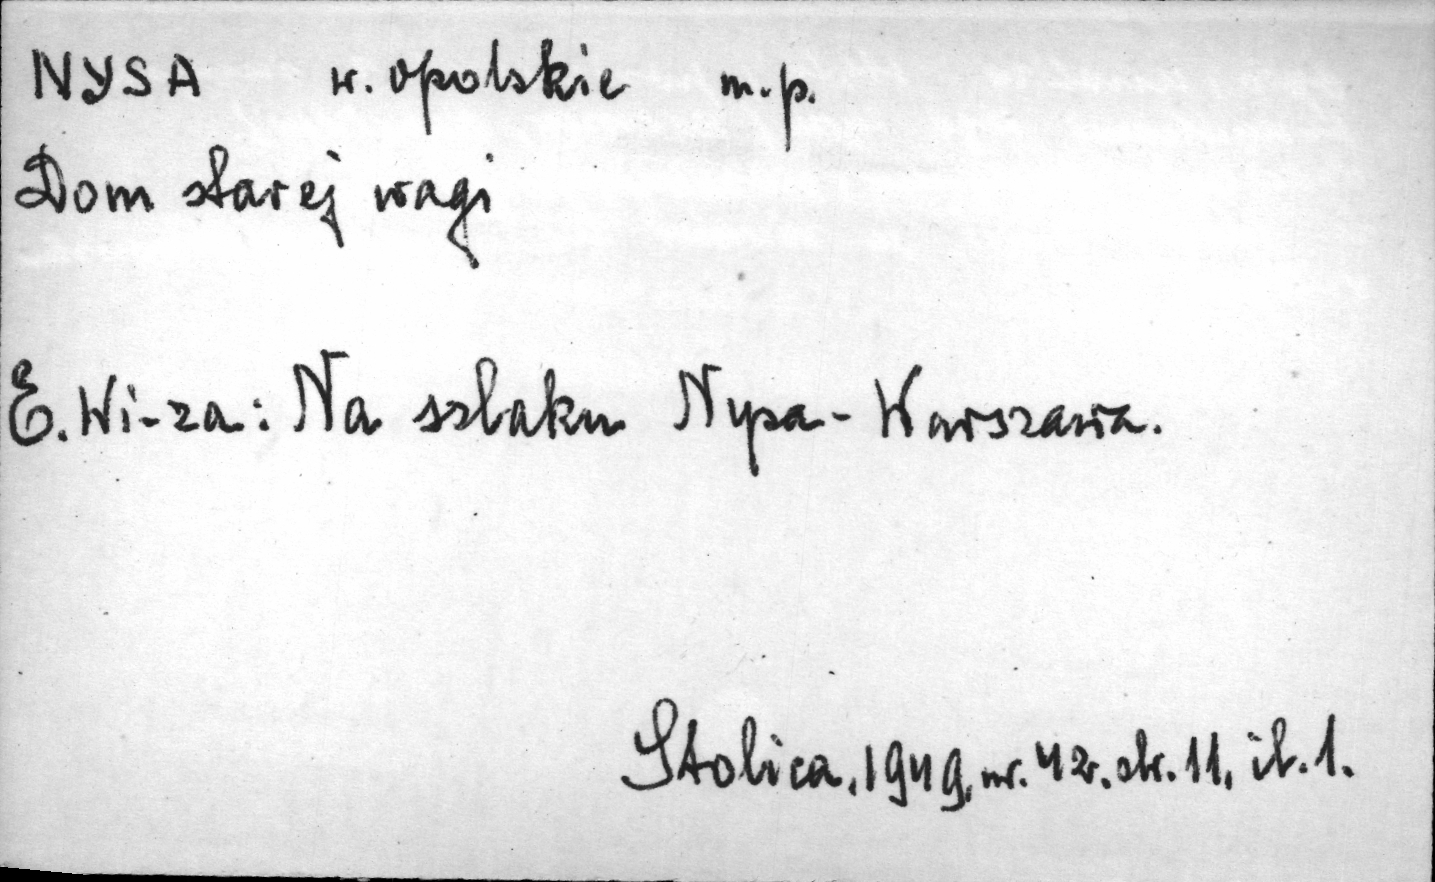 NYSA w. opolskie m.p.
Dom starej wagi
E. Wi-za: Na szlaku Nysa - Warszawa.
Stolica, 1949, nr. 42. str. 11, il. 1.